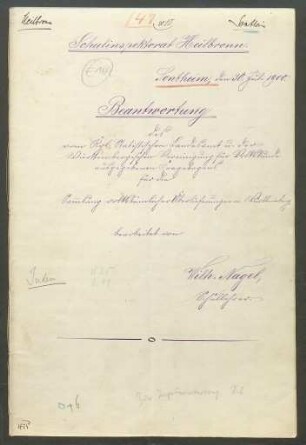 Heilbronn
Sontheim
Schulinspektorat Heilbronn.
Sontheim, den 30. Juli 1900.
Beantwortung
des
vom Kgl. Statistischen Landesamt u. der
Württembergischen Vereinigung für Volkskunde
ausgegebenen Fragebogens
für die
Samlung volkstümlicher Überlieferungen in Württemberg
bearbeitet von
Wilh. Nagel,
Schullehrer.
Juden